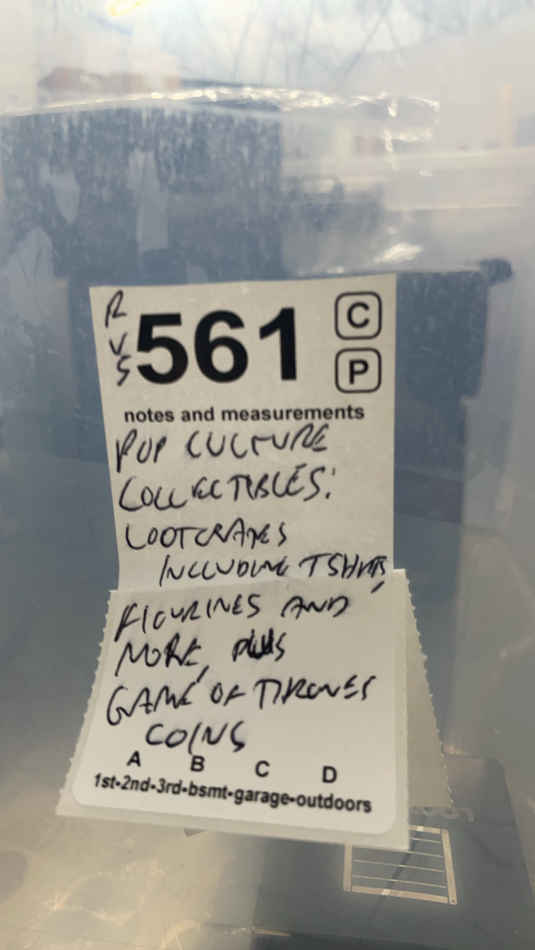 RVS 561 C
P
notes and measurements
POP CULTURE
COLLECTIBLES:
LOOTCRATES
INCLUDING TSHIRTS,
FIGURINES AND
MORE, PLUS
GAME OF THRONES
COINS
A B C D
1st-2nd-3rd-bsmt-garage-outdoors